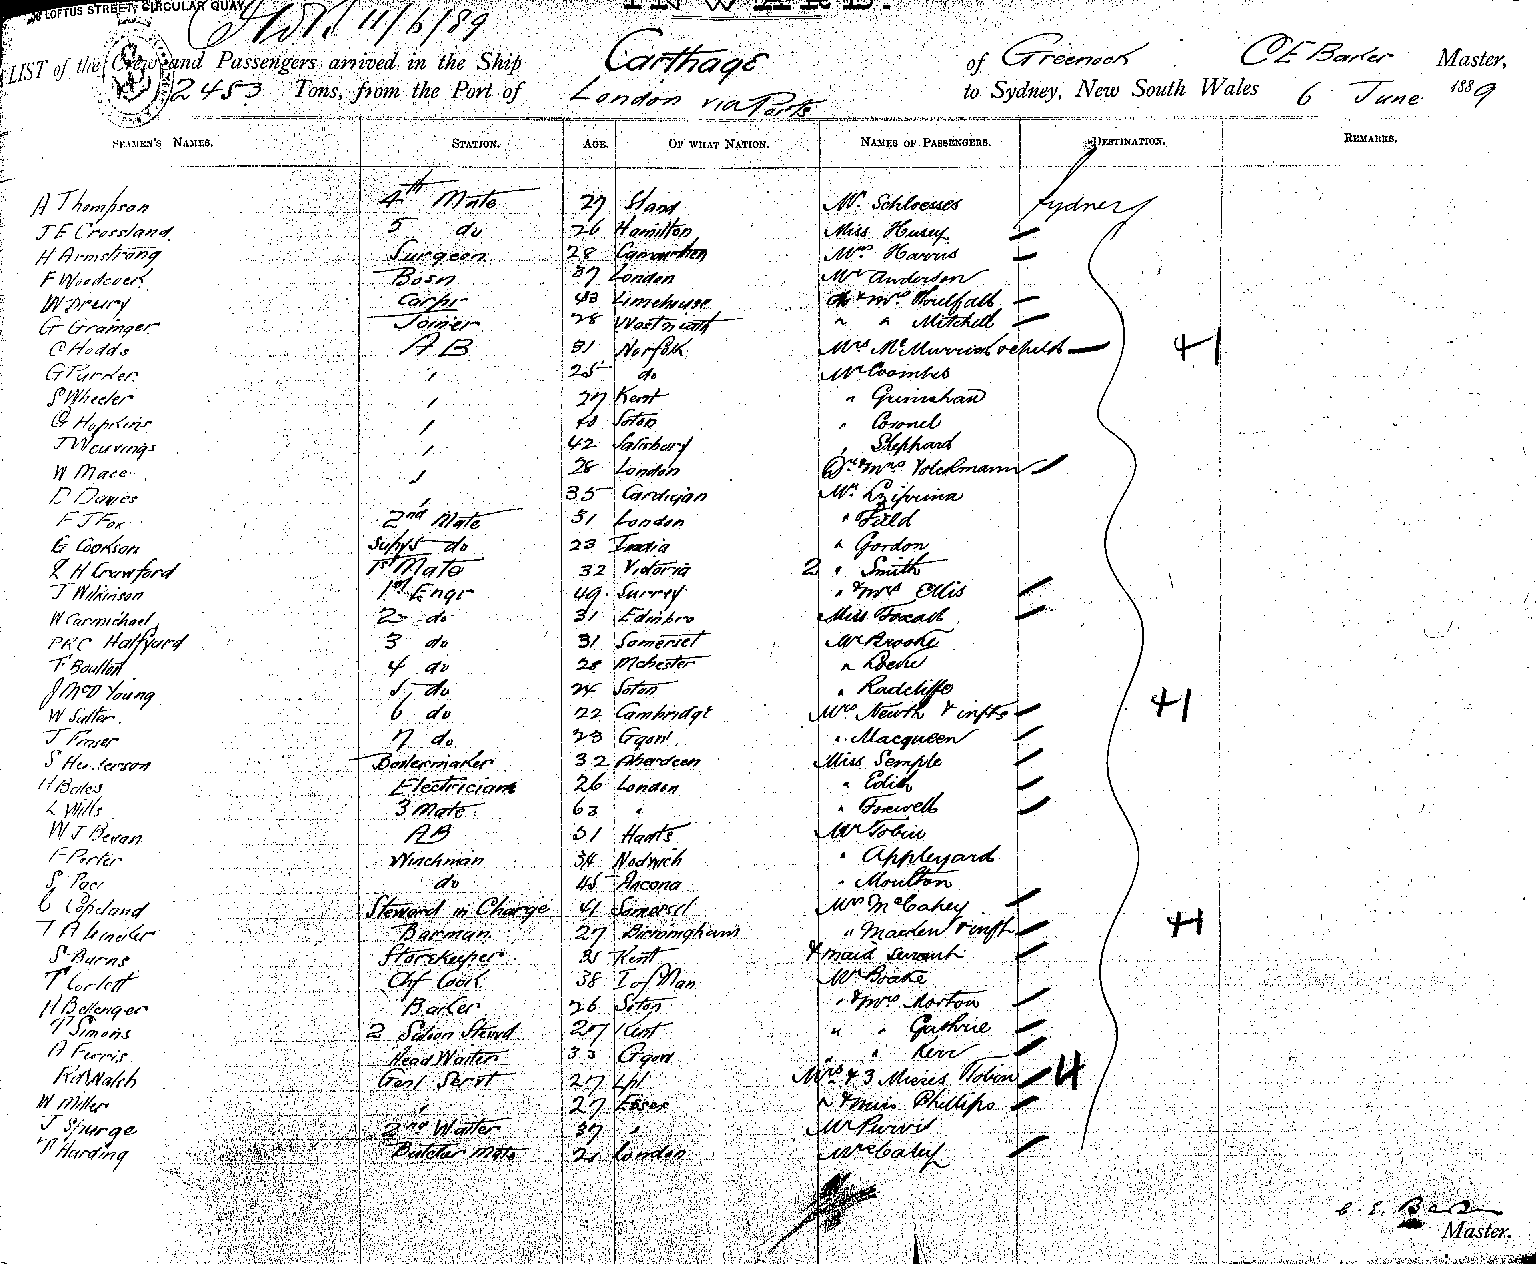 LOFTUS STREET, CIRCULAR QUAY
INWARD.
11/6/89
LIST of the Crew and Passengers arrived in the Ship Carthage of Greenock C E Barker Master,
2483 Tons, from the Port of London via Ports to Sydney, New South Wales 6 June 1889
SEAMEN'S NAMES. STATION. AGE. OF WHAT NATION. NAMES OF PASSENGERS. DESTINATION. REMARKS.
A Thompson 4th Mate 27 Mr Schloesses Sydney
J E Crossland 5 do 26 Hamilton Miss Husey
H Armstrong Surgeon 28 Mrs Harris
F Woodcock Bosn 37 London Mr Anderson
W Drury Carpr 43 Limehouse & Mrs
G Grainger Joiner 28 " " Mitchell
C Hodds A B 31 Norfolk Mrs & child +1
G Turner " 25 do Mr Coombes
S Wheeler " 27 Kent "
G Hopkins " 40 Soton " Coronel
J Weavings " 42 Salisbury " Shephard
W Mace " 28 London Dr & Mrs Volckmann
D Davies " 35 Cardigan Mr
F J Fox 2nd Mate 31 London " Field
G Cookson Supy do 23 India " Gordon
H Crawford 1st Mate 32 Victoria 2 " Smith
J Wilkinson 1st Engr 49 Surrey " & Mrs Ellis
W Carmichael 2 do 31 Edinbro Miss
P R C Halfyard 3 do 31 Somerset Mr Brooke
T Boulton 4 do 28 Mchester "
J McD Young 5 do 24 Soton " Radcliffe
W Sutter 6 do 22 Cambridge Mrs Newth & infts +1
J Fraser 7 do 23 Ggow " Macqueen
S Henderson Boilermaker 32 Aberdeen Miss Semple
H Bales Electrician 26 London " Edith
L Wills 3 Mate 63 " "
W J Bevan AB 31 Hants Mr Tobin
F Porter Winchman 34 " Appleyard
S Paci do 45 Ancona " Moulton
C Copeland Steward in Charge 41 Somerset Mrs McCahey
T Barman 27 Birmingham " & inft +1
S Burns Storekeeper 31 Kent & maid Servant
T Corlett Chf Cook 38 I of Man Mr Boake
H Bellenger Baker 26 Soton " & Mrs Morton
T Simons 2 Saloon Stewd 27 Kent " " Guthrie
A Ferris Head Waiter 33 Ggow " " Kerr
R Walsh Genl Servt 27 Lpl Mrs & 3 Misses Tobin 4
W Miller " 27 Essex " & Miss Phillips
J Spurge 2nd Waiter 37 " Mr Purvis
Harding Butcher Mate 21 London McCahey
C. E. Barker
Master.